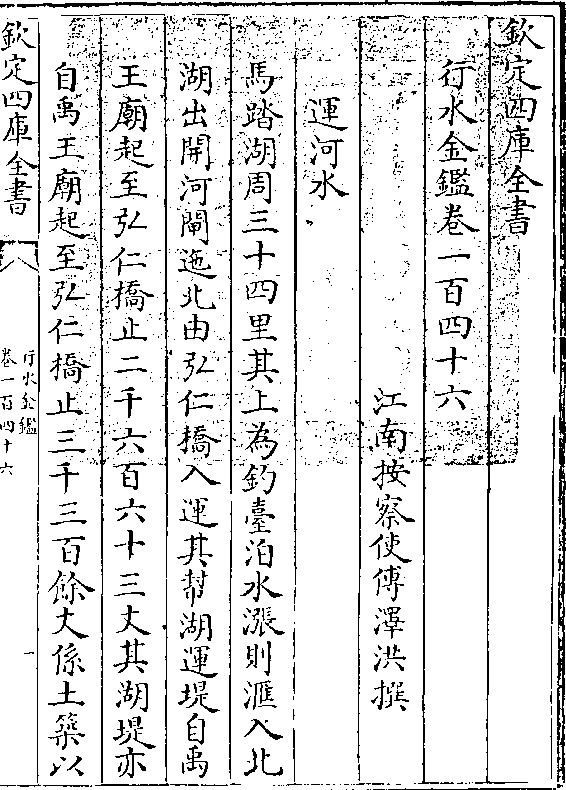 欽定四庫全書
行水金鑑卷一百四十六
江南按察使傅澤洪撰
運河水
馬踏湖周三十四里其上為釣臺泊水漲則滙入北
湖出開河閘迤北由弘仁橋入運其幇湖運堤自禹
王廟起至弘仁橋止二千六百六十三丈其湖堤亦
自禹王廟起至弘仁橋止三千三百餘丈係土築以
欽定四庫全書
行水金鑑
卷一百四十六
一